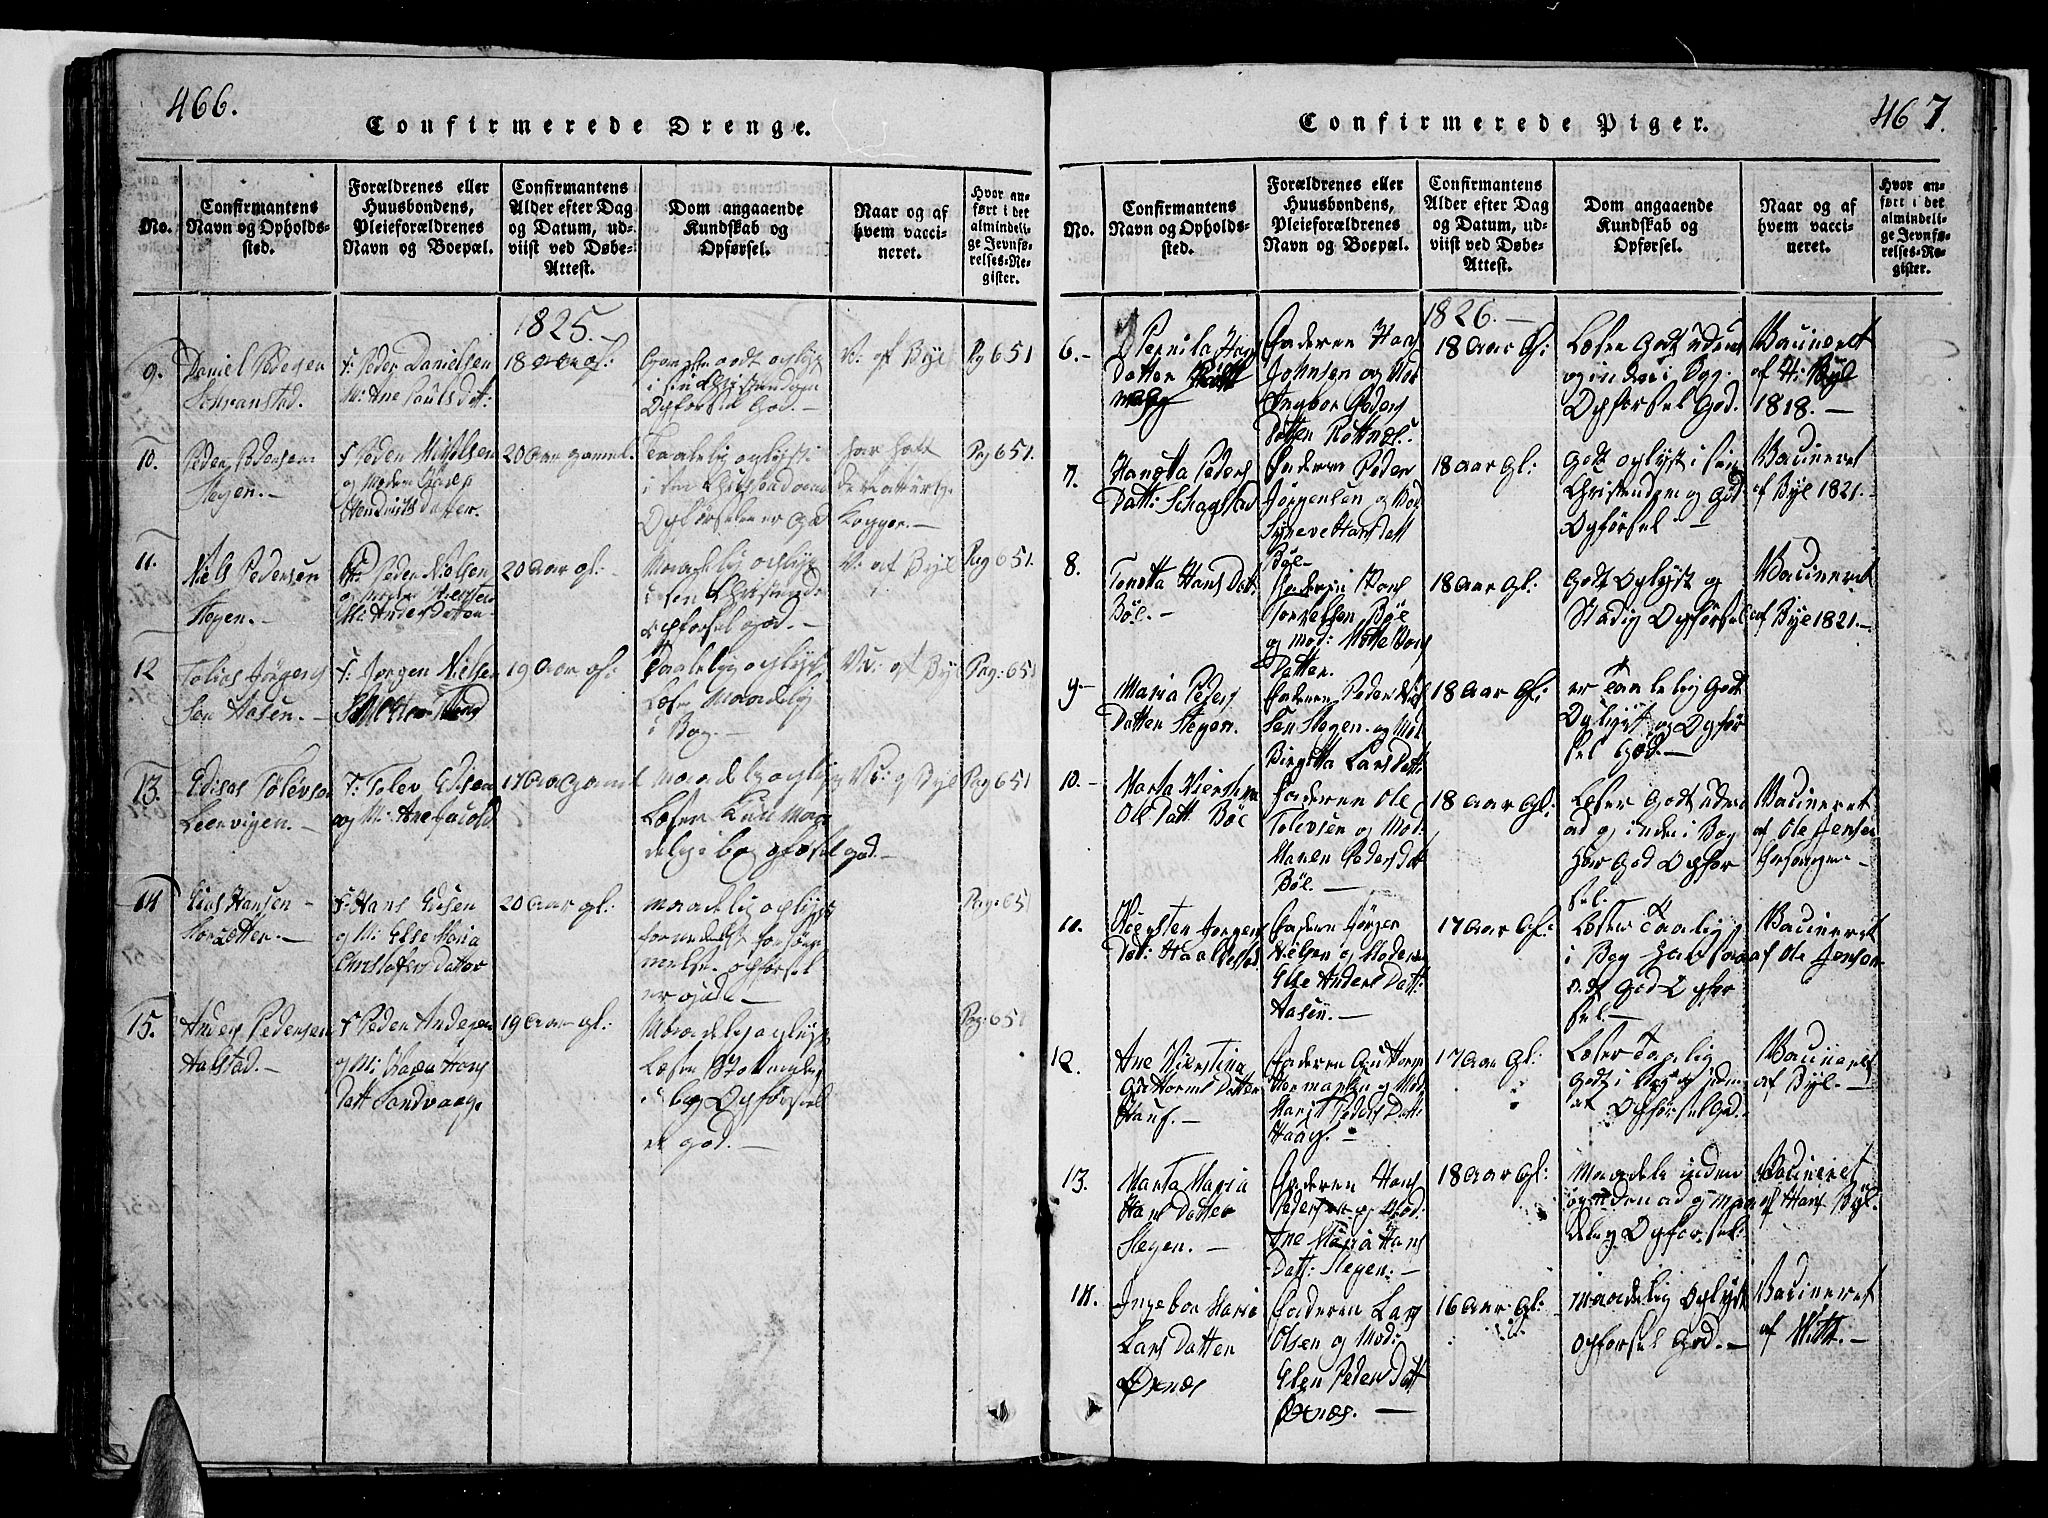 466.
Confirmerede Drenge.
No.
Confirmantens
Navn og Opholds-
sted.
Forældrenes eller
Huusbondens,
Pleieforældrenes
Navn og Boepæl.
Confirmantens
Alder efter Dag
og Datum, ud-
viist ved Døbe-
Attest.
Dom angaaende
Kundskab og
Opførsel.
Naar og af
hvem vacci-
neret.
Hvor an-
ført i det
almindeli-
ge Jevnfø-
relses-Re-
gister.
1825.
9.
Daniel Pedersen
F: Peder Danielsen
M: Ane Pouls Datt:
18 Aar gl:
i sin Christendom
Opførsel God.
V: af Byl
Pag 651
10.
Peder Pedersen
Stegen.
F Peder Nicholsen
og Moderen
Hendrichs Datter.
20 Aar gammel.
Taalelig oplyst
i sin Christendom
Opførselen er God
har hatt
de naturlige
Kopper.
Pag 651.
11.
Niels Pedersen
Stegen.
Peder Nielsen
Anders Datter
20 Aar gl:
Maadelig oplyst
i sin Christendom
opførsel god.
V: af Byl
Pag 651.
12
Tobias Jørgens
Søn Aasen.
F: Jørgen Nielsen
19 Aar gl:
Taalelig oplyst
Læser Maadelig
i Bog.
Vc: af Byl
Pag: 651
13.
Edisas Tolevsøn
Leervigen.
F: Tolev Edisen
og M: Ane
17 Aar gamel
Maadelig oplyst
Læser Kun Maa-
delig i bog opførsel god.
Vc: af Byl
Pag 651
14
Elias Hansen
F: Hans Edisen
og M: Else Maria
Christofers Datter
20 Aar gl:
Maadelig oplyst
formedelst forsøm-
melse. opførsel
er gode
Pag: 651
15.
Anders Pedersen
Aalstad.
F Peder Andersen
og M: Hans
Datt Sandvaag.
19 Aar gl:
Maadelig oplyst
Læser
i bog Opførsel
er god.
Pag: 651
467.
Confirmerede Piger.
No.
Confirmantens
Navn og Opholds-
sted.
Forældrenes eller
Huusbondens,
Pleieforældrenes
Navn og Boepæl.
Confirmantens
Alder efter Dag
og Datum, ud-
viist ved Døbe-
Attest.
Dom angaaende
Kundskab og
Opførsel.
Naar og af
hvem vacci-
neret.
Hvor an-
ført i det
almindeli-
ge Jevnfø-
relses-Re-
gister.
1826.
6.
Pernila Hans
Datter
Faderen Hans
Johnsen og Mod
Ingbor Peders
Datter Rottnæs.
18 Aar Gl:
Læser Godt uden
og inden i Bog.
Opførsel God.
Vacineret
af H: Byl
1818.
7.
Hanetta Peders
Datt: Schagstad
Faderen Peder
Jørgensen og Mod
Synneve Hans Datt
Böl
18 Aar Gl:
Godt oplyst i sin
Christendom og God
Opførsel
Vacineret
af Byl 1821.
8.
Tonetta Hans Dat:
Böl.
Faderen Hans
Torkelsen Böl
og Mod:
Datter.
18 Aar Gl:
Godt Oplyst og
Stadig Opførsel
Vacineret
af Byl 1821.
9.
Maria Peders
Datter Stegen.
Faderen Peder Niel
Sen Stegen. og Mod
Birgitta Lars Datt:
18 Aar Gl:
er Taalelig Godt
Oplyst og Opfør
sel God.
10.
Marta Kierstina
Ole Datt Böl
Faderen Ole
Tolevsen og Mod
Maren Peders Datt
Böl.
18 Aar Gl:
Læser Godt uden
ad og inden i Bog
Har God Opfør
sel.
Vacineret
af Ole Jensen
forsanger
11.
Kiersten Jørgens
Dat:
Faderen Jørgen
Nielsen og Moderen
Else Anders Datt:
Aasen.
17 Aar Gl:
Læser Taalig
i Bog
God Opfør
sel
Vacineret
af Ole Jensen
12.
Ane Kierstina
Guttorms Datter
Haug.
Faderen Guttorm
Hermansen og Mod
Marit Peders Datt
Haug.
17 Aar Gl:
Læser Taalig
Godt i bog og uden
at Opførsel God.
Vacineret
af Byl.
13.
Marta Maria
Hans Datter
Stegen.
Faderen Hans
Pedersen og Mod:
Ane Maria Hans
Datt: Stegen.
18 Aar Gl:
Maadele inden
og uden ad og maa
delig Opførsel:
Vacineret
af Hans Byl
14.
Ingebor Maria
Lars Datter
Øxnæs
Faderen Lars
Olsen og Mod:
Elen Peders Datt
Øxnæs.
16 Aar Gl:
Maadelig Oplyst
opførsel God.
Vacineret
af Witt.